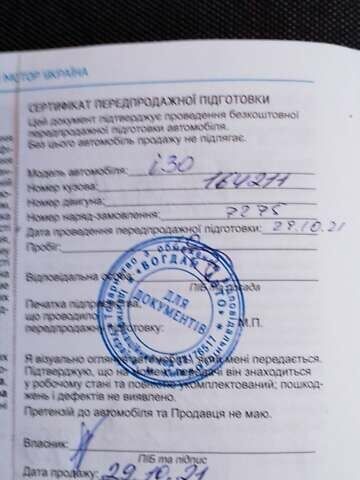 МОТОР УКРАЇНА
СЕРТИФІКАТ ПЕРЕДПРОДАЖНОЇ ПІДГОТОВКИ
Цей документ підтверджує проведення безкоштовної
передпродажної підготовки автомобіля.
Без цього автомобіль продажу не підлягає.
Модель автомобіля: i30
Номер кузова: 164211
Номер двигуна:
Номер наряд-замовлення: 7275
Дата проведення передпродажної підготовки: 29.10.21
Пробіг:
Відповідальна особа
ПІБ та посада
Печатка підприємства,
що проводило
передпродажну підготовку: М.П.
"БОГДАН АВТО"
ДЛЯ
ДОКУМЕНТІВ
Я візуально оглянув автомобіль, який мені передається.
Підтверджую, що на момент передачі він знаходиться
у робочому стані та повністю укомплектований; пошкод-
жень і дефектів не виявлено.
Претензій до автомобіля та Продавця не маю.
Власник:
ПІБ та підпис
Дата продажу: 29.10.21